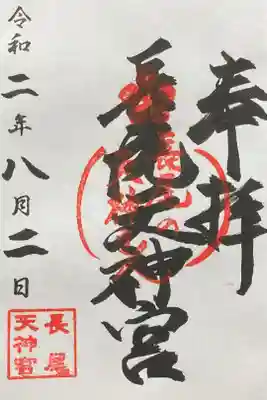 奉拝
長尾天神宮
令和二年八月二日
長尾
天神宮